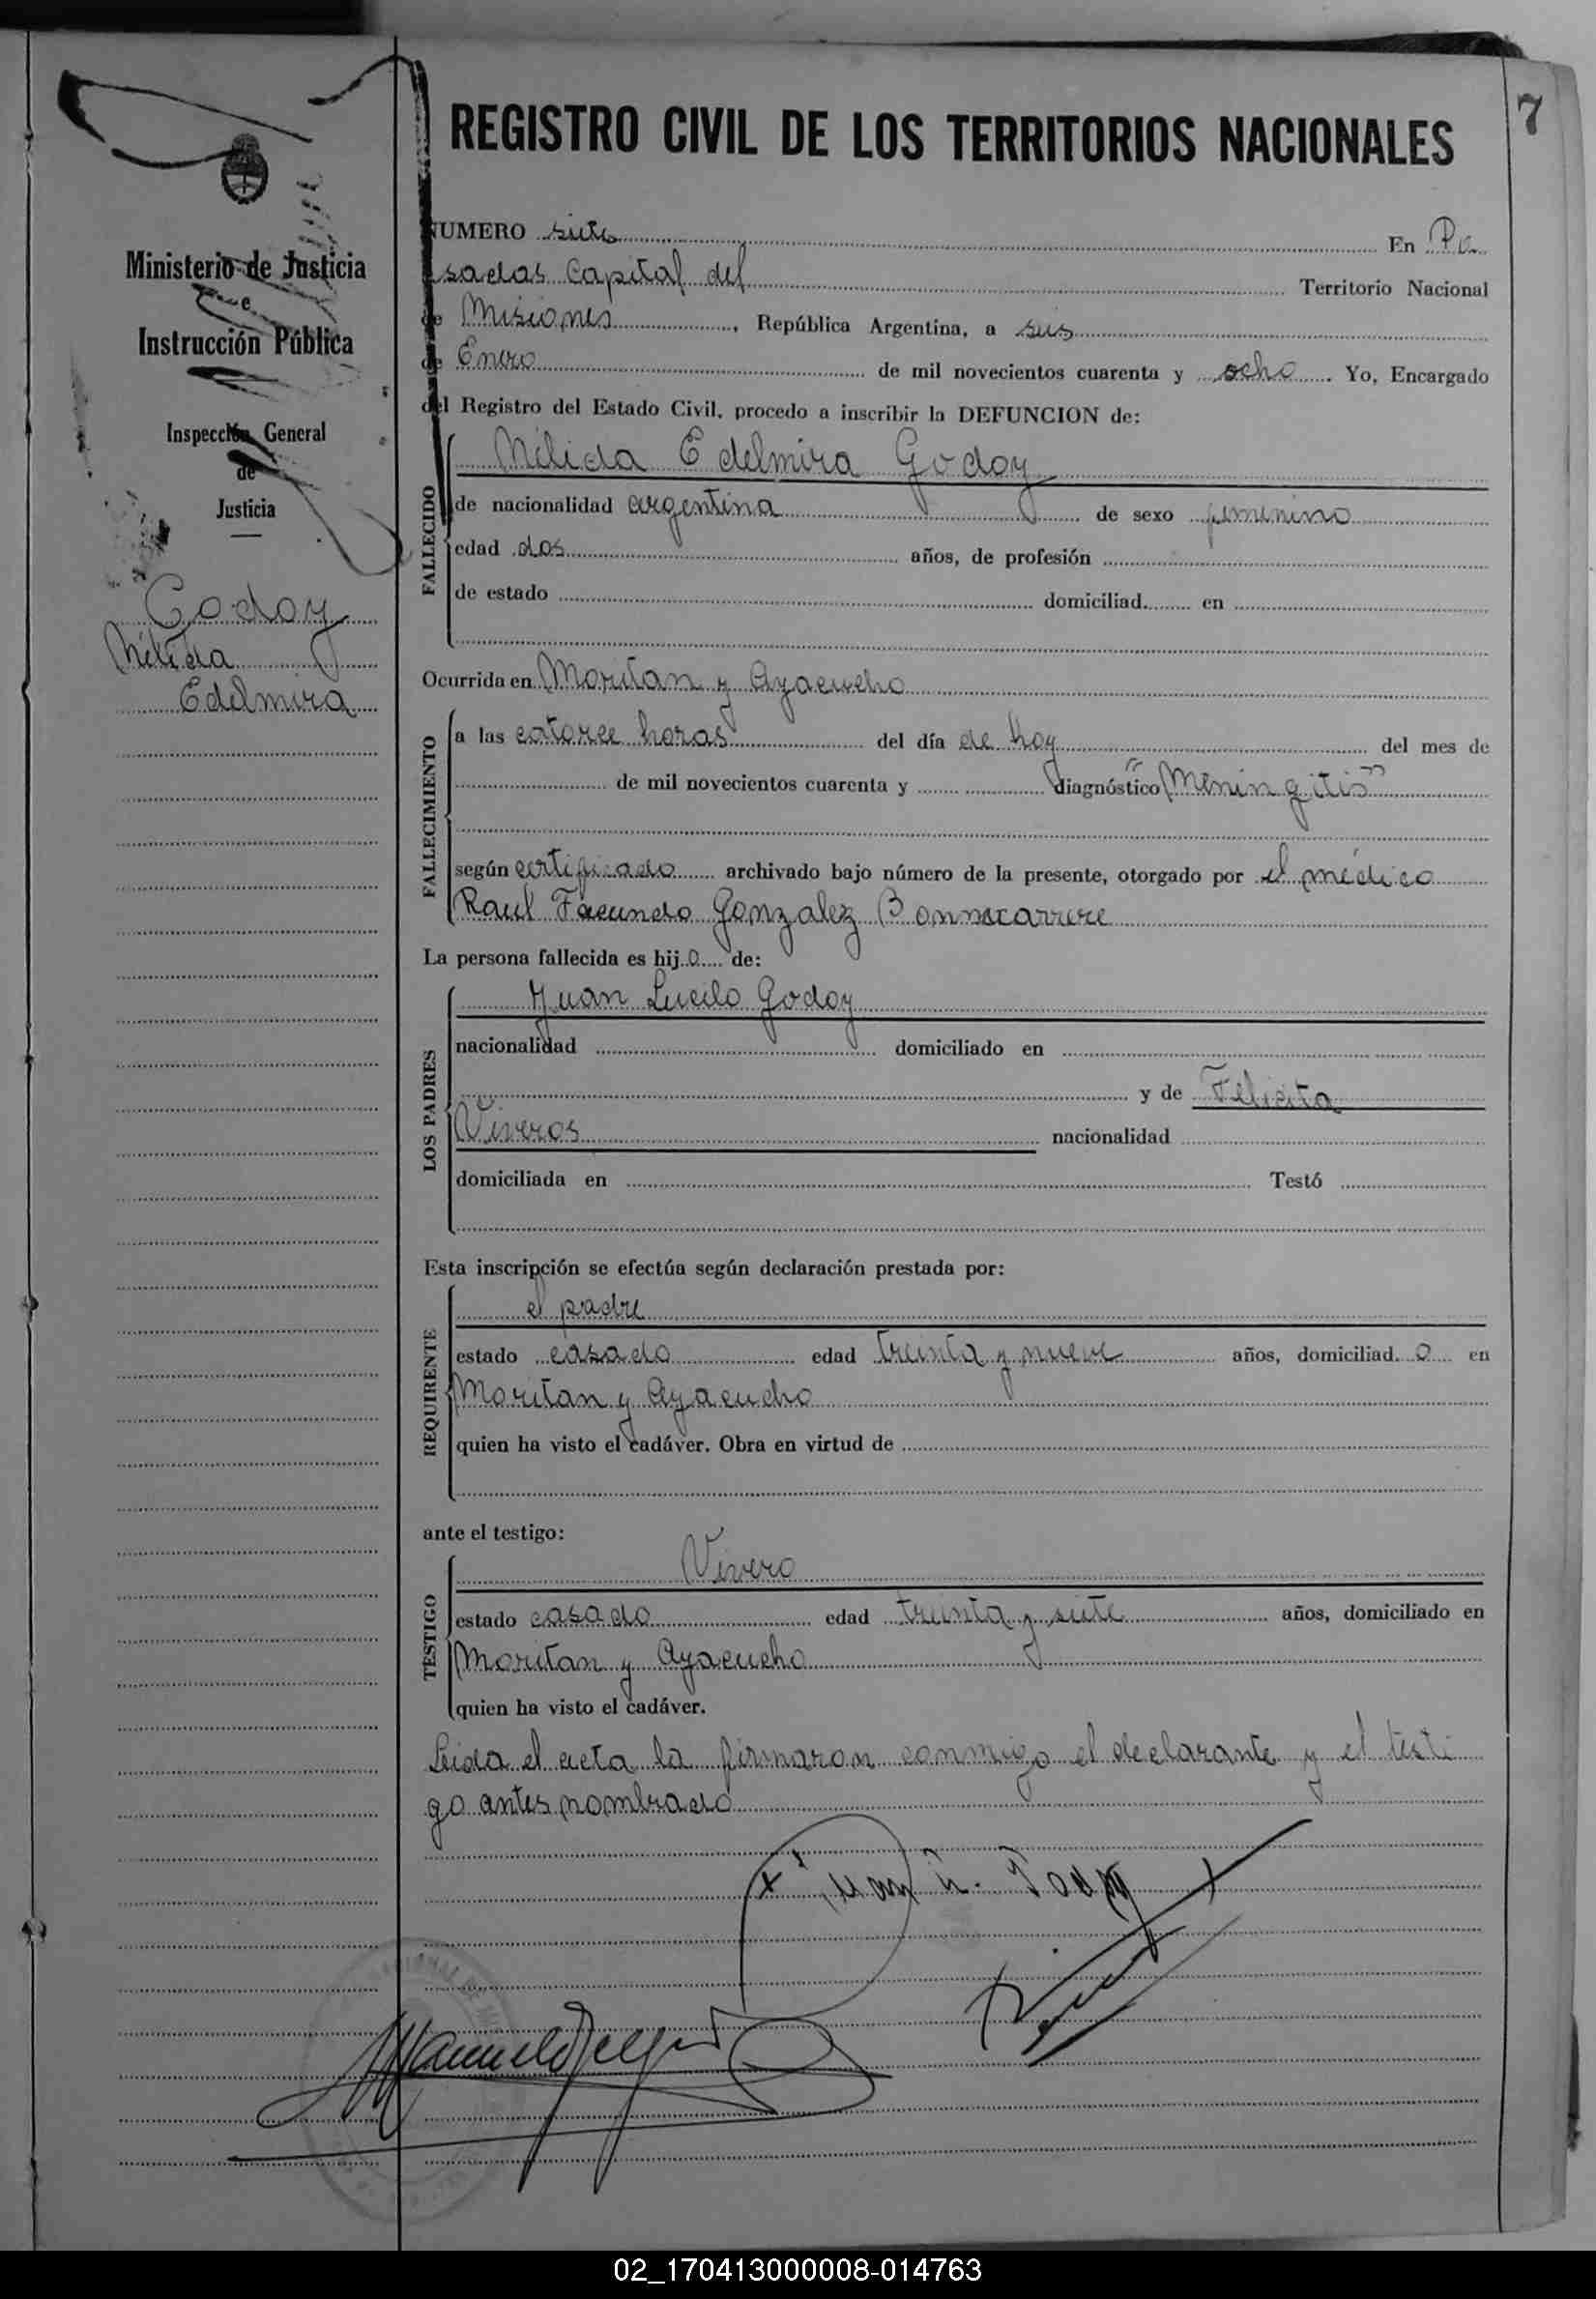 7
REGISTRO CIVIL DE LOS TERRITORIOS NACIONALES
Ministerio de Justicia
e
Instrucción Pública
Inspección General
de
Justicia
Godoy
Nélida
Edelmira
NUMERO siete En Po
sadas Capital del Territorio Nacional
de Misiones, República Argentina, a seis
de Enero de mil novecientos cuarenta y ocho. Yo, Encargado
del Registro del Estado Civil, procedo a inscribir la DEFUNCION de:
FALLECIDO
Nélida Edelmira Godoy
de nacionalidad argentina de sexo femenino
edad dos años, de profesión
de estado domiciliad en
Ocurrida en Moritan y Ayacucho
FALLECIMIENTO
a las catorce horas del día de hoy del mes de
de mil novecientos cuarenta y diagnóstico "Meningitis"
según certificado archivado bajo número de la presente, otorgado por el médico
Raul Facundo Gonzalez Bonnecarrere
La persona fallecida es hijo de:
LOS PADRES
Juan Lucilo Godoy
nacionalidad domiciliado en
y de Felicita
Viveros nacionalidad
domiciliada en Testó
Esta inscripción se efectúa según declaración prestada por:
REQUIRENTE
el padre
estado casado edad treinta y nueve años, domiciliado en
Moritan y Ayacucho
quien ha visto el cadáver. Obra en virtud de
ante el testigo:
TESTIGO
Vivero
estado casado edad treinta y siete años, domiciliado en
Moritan y Ayacucho
quien ha visto el cadáver.
Leida el acta la firmaron conmigo el declarante y el testi
go antes nombrado
02_170413000008-014763